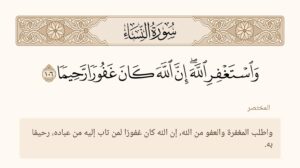 سُورَةُ النِّسَاءِ
وَاسْتَغْفِرِ اللَّهَ ۖ إِنَّ اللَّهَ كَانَ غَفُورًا رَحِيمًا ١٠٦
المختصر
واطلب المغفرة والعفو من الله، إن الله كان غفورًا لمن تاب إليه من عباده، رحيمًا
به.